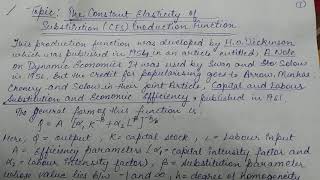 Topic: The Constant Elasticity of
Substitution (CES) Production Function
This production function was developed by H.D. Dickinson
which was published in 1954, in an article entitled, A Note
on Dynamic Economics. It was used by Swan and Solow also
in 1956, but the credit for popularising goes to Arrow, Minhas
Chenery and Solow in their joint Article, Capital and Labour
Substitution and Economic Efficiency, published in 1961
The general form of this function is
q = A [α₁ K
Here, q = output, K = Capital stock, L = Labour Input
A = Efficiency parameters, α₁ = capital intensity factor and
α₂ = Labour intensity factor), β = substitution parameter
whose value lies b/w -1 and ∞, h = degree of homogeneity